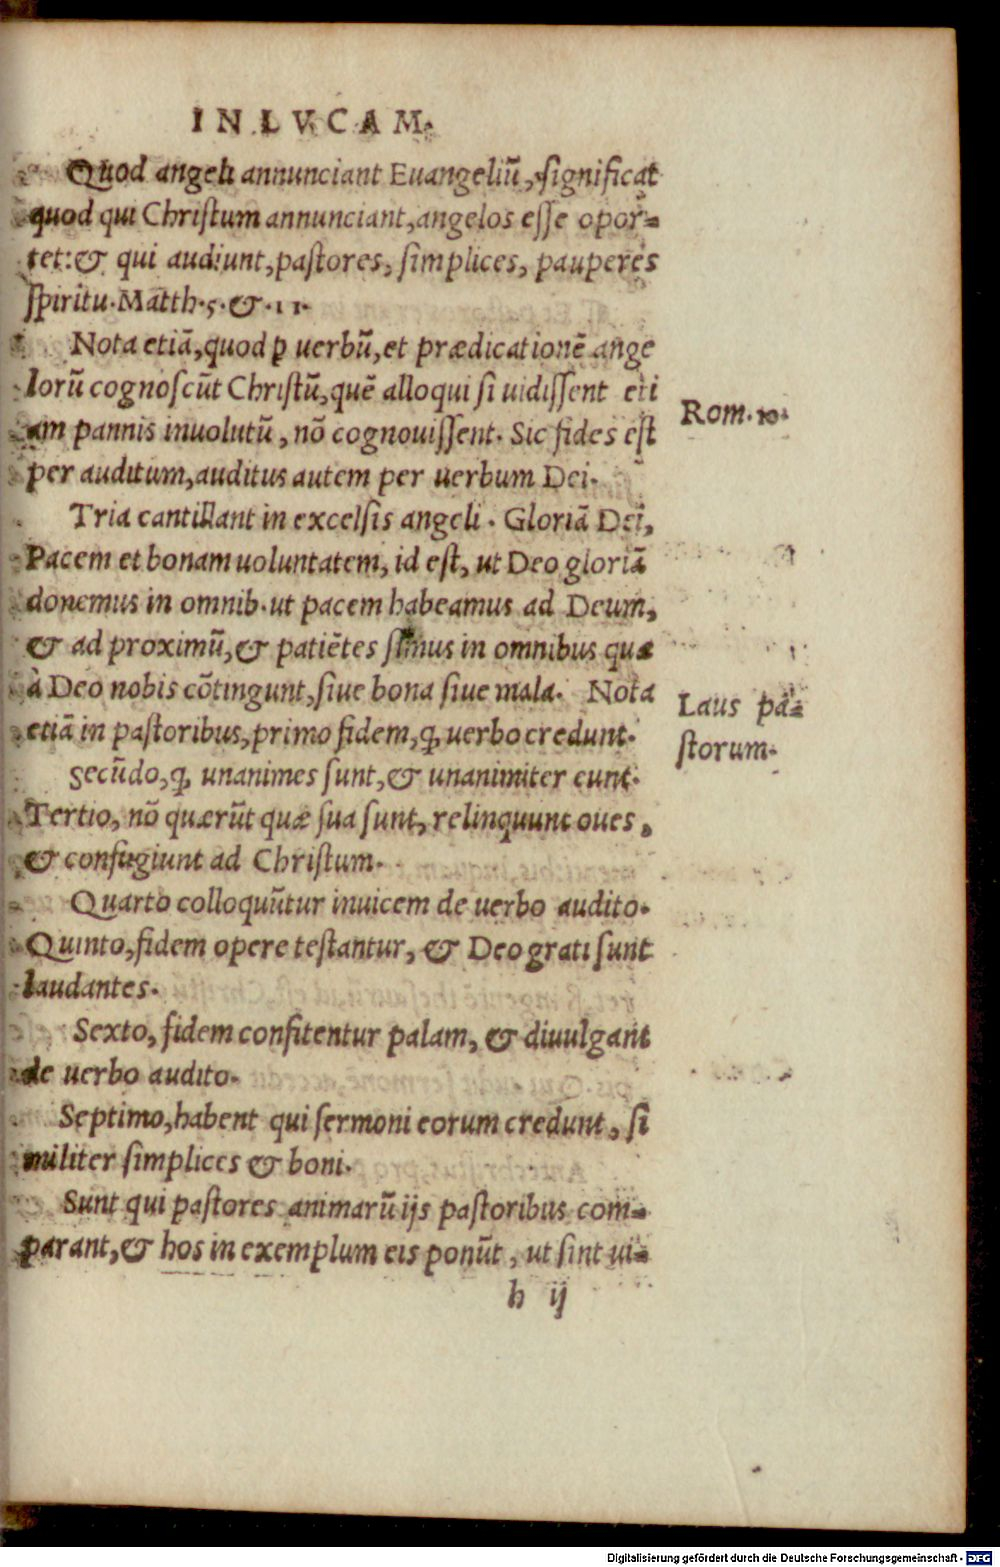 IN LVCAM.
Quod angeli annunciant Euangeliū, significat
quod qui Chriſtum annunciant, angelos eſſe opor-
tet: & qui audiunt, paſtores, ſimplices, pauperes
ſpiritu. Matth. 5. & .11.
Nota etiā, quod ꝑ uerbū, et prædicationē ange
lorū cognoſcūt Chriſtū, quē alloqui ſi uidiſſent eti
am pannis inuolutū, nō cognouiſſent. Sic fides eſt
Rom. 10.
per auditum, auditus autem per uerbum Dei.
Tria cantillant in excelſis angeli. Gloriā Dei,
Pacem et bonam uoluntatem, id eſt, ut Deo gloriā
donemus in omnib. ut pacem habeamus ad Deum,
& ad proximū, & patiētes ſimus in omnibus quæ
à Deo nobis cōtingunt, ſiue bona ſiue mala. Nota
Laus pa-
ſtorum.
etiā in paſtoribus, primo fidem, ꝙ uerbo credunt.
Secūdo, ꝙ unanimes ſunt, & unanimiter eunt.
Tertio, nō quærūt quæ ſua ſunt, relinquunt oues,
& confugiunt ad Chriſtum.
Quarto colloquūtur inuicem de uerbo audito.
Quinto, fidem opere teſtantur, & Deo grati ſunt
laudantes.
Sexto, fidem confitentur palam, & diuulgant
de uerbo audito.
Septimo, habent qui ſermoni eorum credunt, ſi
militer ſimplices & boni.
Sunt qui paſtores animarū ijs paſtoribus com-
parant, & hos in exemplum eis ponūt, ut ſint ui-
h ij
Digitalisierung gefördert durch die Deutsche Forschungsgemeinschaft - DFG